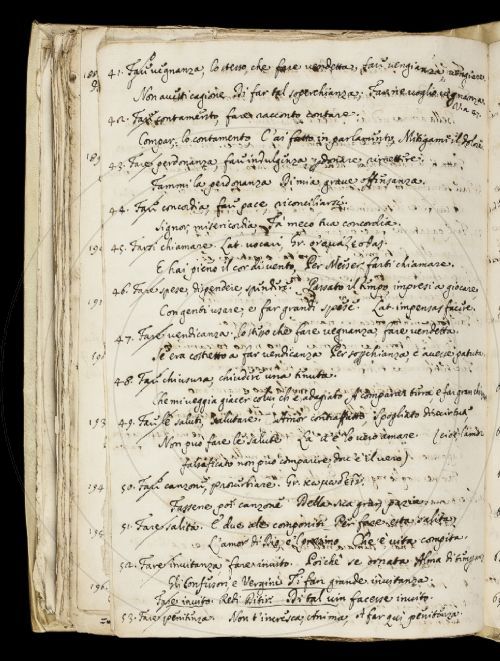 41. Fare vegnanza, lo stesso che fare vendetta, fare vengianza
Non avesti cagione Di far tal soperchianza; Far ne voglio vegnanza
42. Fare contamento, fare racconto contare.
Compar, lo contamento C'ai fatto in parlamento, Mitigami il dolore
43. Fare perdonanza, fare indulgenza perdonare, rimettere.
Fammi la perdonanza Di mia grave offensanza.
44. Fare concordia, fare pace, riconciliarsi.
Signor, misericordia, Fa meco tua concordia.
45. Farsi chiamare. Lat. vocari. Gr.
E hai pieno il cor di vento, Per Meiser farti chiamare.
46. Fare spese, dispendere spendere. Passato il tempo impresi a giocare
Con genti usare, e far grandi spese. Lat. impensas facere.
47. Fare vendicanza. lo stesso che fare vegnanza, fare vendetta.
Se era costretto a far vendicanza Per soperchianza c'avesse patuta.
48. Fare chiusura chiudere una tenuta.
Che mi veggia giacer colui ch'è adagiato A comparar terra e far gran
193 49. Fare le saluti, salutare. Amor contraffatto Spogliato di virtua
Non può fare le salute Là 'v'è lo vero amare. (cioè l'amore
falsificato non può comparire, dov'è il vero)
194 50. Fare canzoni, proverbiare. Gr. κωμῳδεῖν.
Fassene poi canzone Della sua gran pazia.
51. Fare salita. E due ale componiti Per fare esta salita;
L'amor di Dio, e 'l prossimo Che è vita compita.
52. Fare invitanza fare invito. Poichè se' ornata Alma di
Di Confessori e Vergini Ti fan grande invitanza.
Fare invito. Redi Ditir. Di tal vin facesse invito.
53. Fare penitenza. Non t'incresca, Anima, A far qui penitenza.